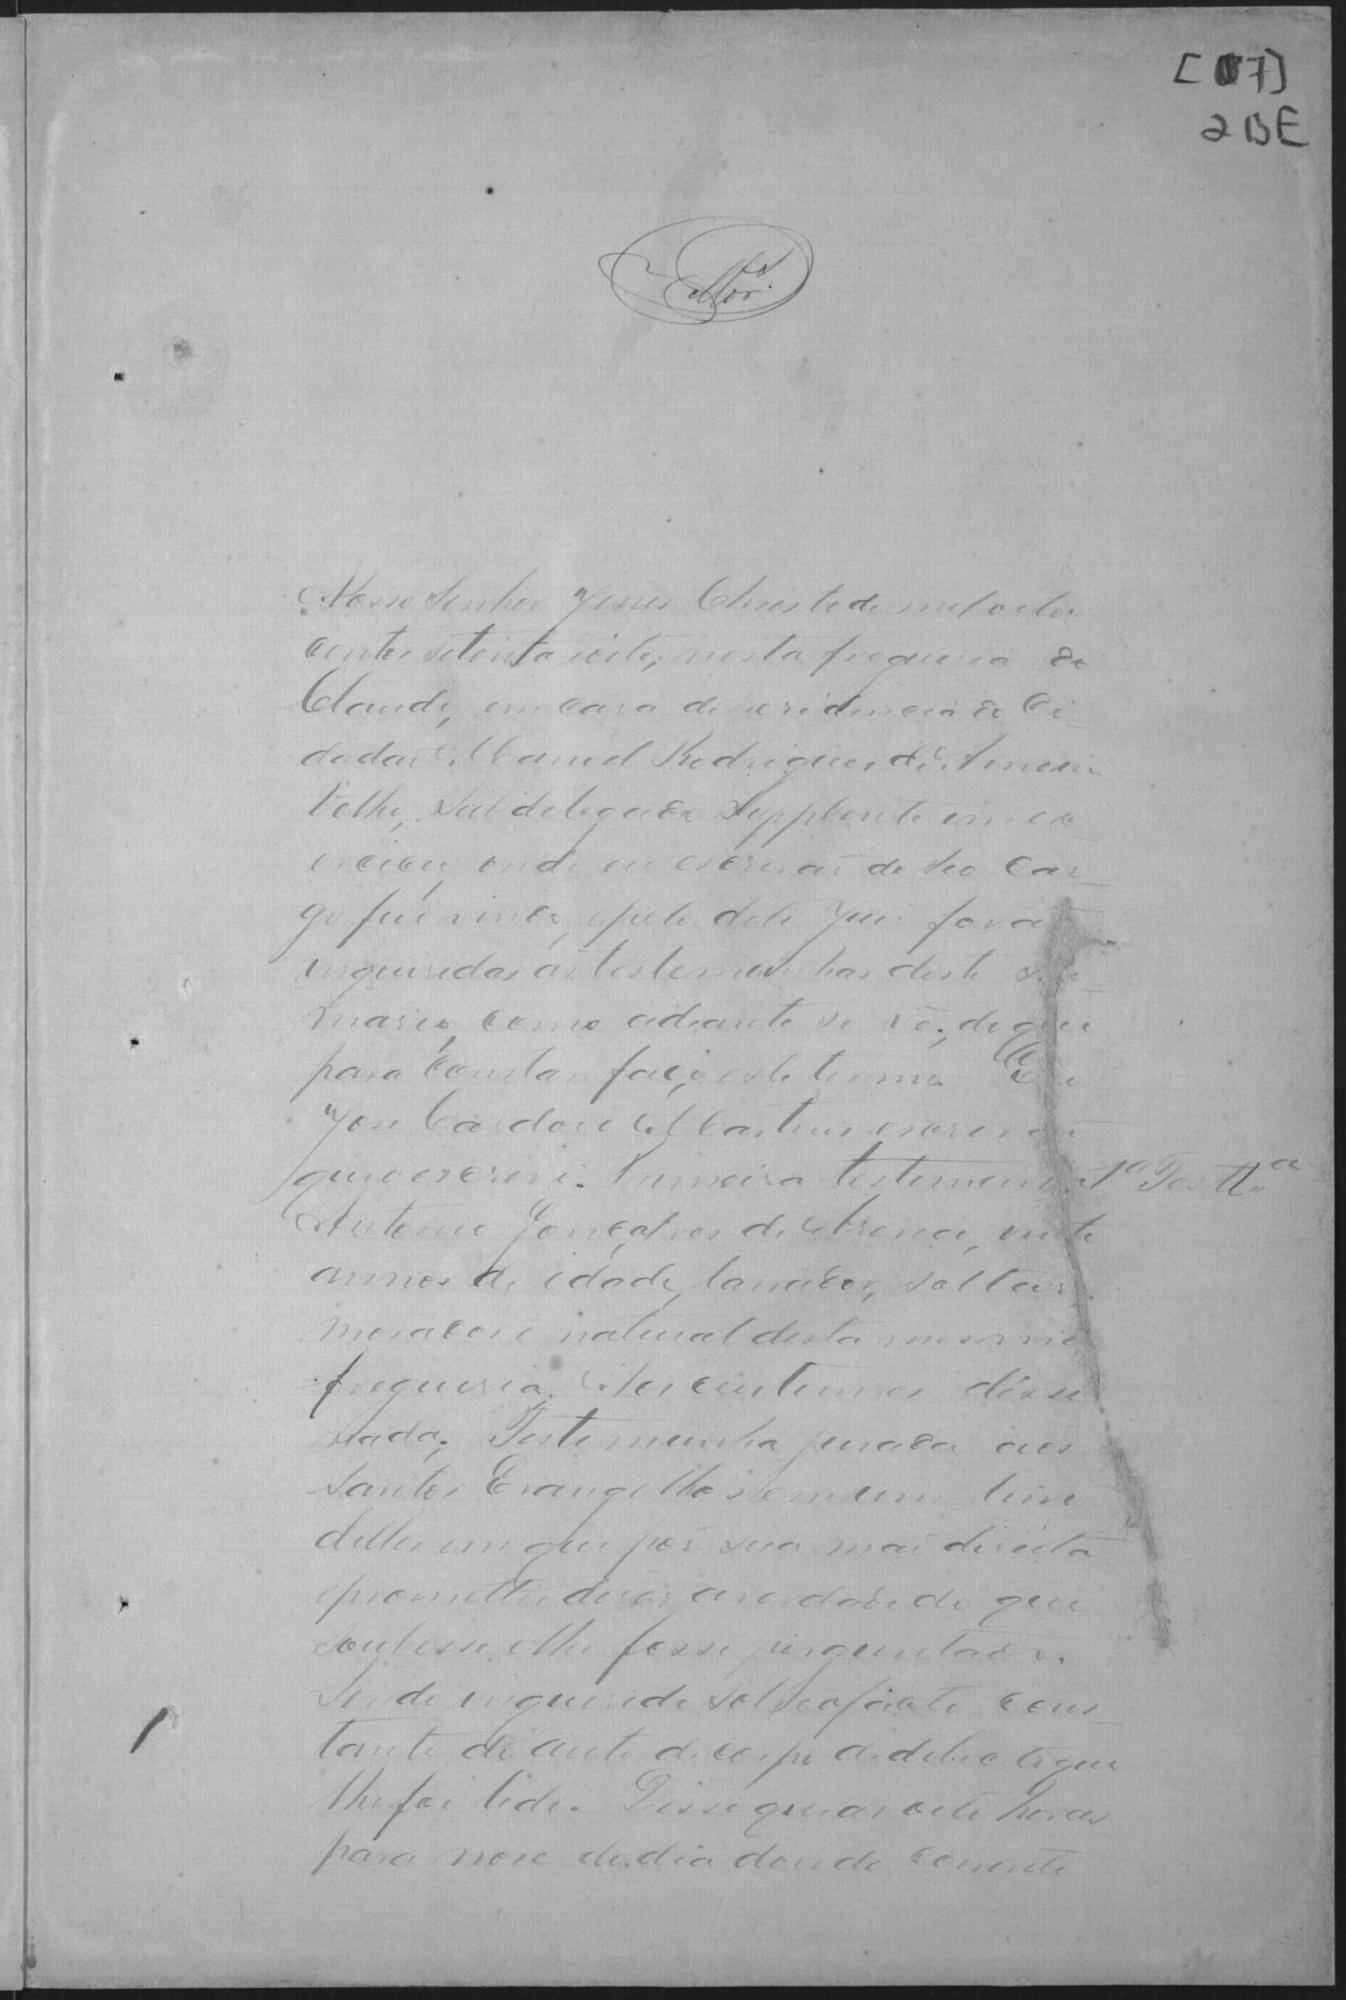 [07]
2BE
Nosso Senhor Jesus Christo de mil oito
centos setenta e oito, nesta freguesia do
Claudi, em casa de residencia do Ci-
dadaõ Manoel Rodrigues de
Subdelegado Supplente em ex
ercicio, onde eu escrivaõ de seo car-
go fui vindo, e pelo dito Juis foraõ
inqueridas as testemunhas deste
mario, como adeante se vê; do que
para constar faço este termo. Eu
Jose Cardoso Martins escrivaõ
que o escrevi. Primeira testemunha 1ª Testª
Antonio Gonçalves de Abreu, vinte
annos de idade, lavrador, solteiro
morador e natural desta mesma
freguesia. Aos custumes disse
nada; Testemunha jurada aos
Santos Evangelhos em um livro
delles em que pos sua maõ direita
e prometteo diser a verdade do que
soubesse e lhe fosse perguntado.
Sendo inquerido sobre o facto cons-
tante do auto de corpo de delicto que
lhe foi lido. Disse que as oito horas
para nove do dia dose do corrente